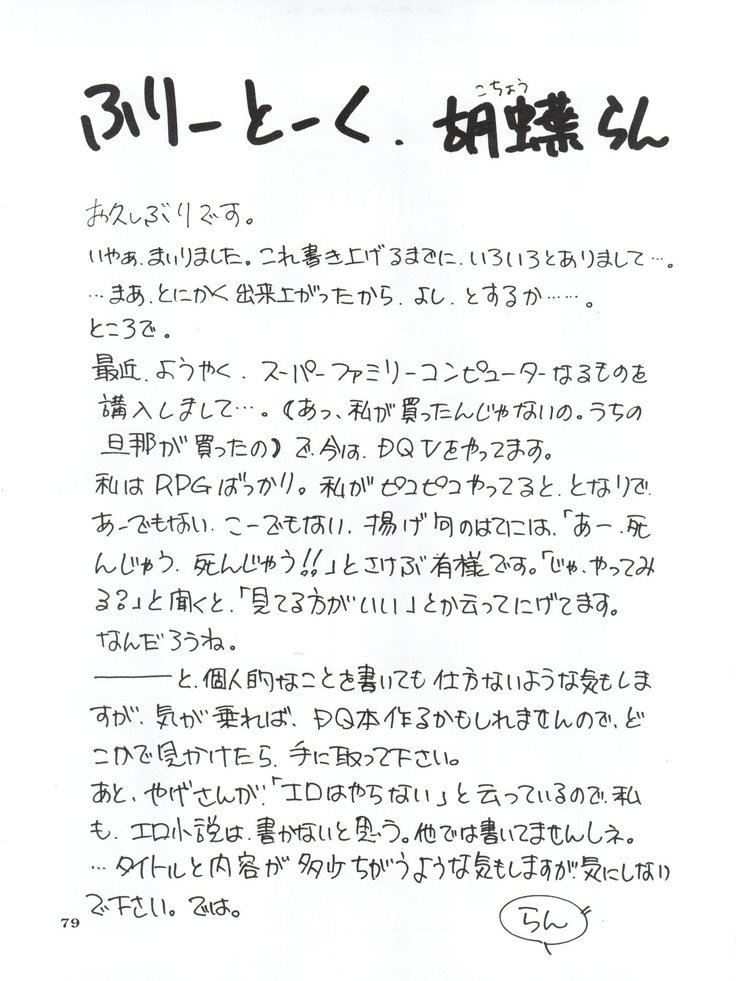 ふりーとーく. 胡蝶らん
こちょう
お久しぶりです。
いやぁ、まいりました。これ書き上げるまでに、いろいろとありまして…。
…まあ、とにかく出来上がったから、よし、とするか……。
ところで。
最近、ようやく、スーパーファミリーコンピューターなるものを
講入しまして…。(あっ、私が買ったんじゃないの。うちの
旦那が買ったの)で、今は、DQⅤをやってます。
私はRPGばっかり。私がピコピコやってると、となりで、
あーでもない、こーでもない、揚げ句のはてには、「あー、死
んじゃう、死んじゃう!!」とさけぶ有様です。「じゃ、やってみ
る?」と聞くと、「見てる方がいい」とか云ってにげてます。
なんだろうね。
―――と、個人的なことを書いても仕方ないような気もしま
すが、気が乗れば、DQ本作るかもしれませんので、ど
こかで見かけたら、手に取って下さい。
あと、やげさんが、「エロはやらない」と云っているので、私
も、エロ小説は、書かないと思う。他では書いてませんしネ。
…タイトルと内容が多少ちがうような気もしますが、気にしない
で下さい。では。
らん
79